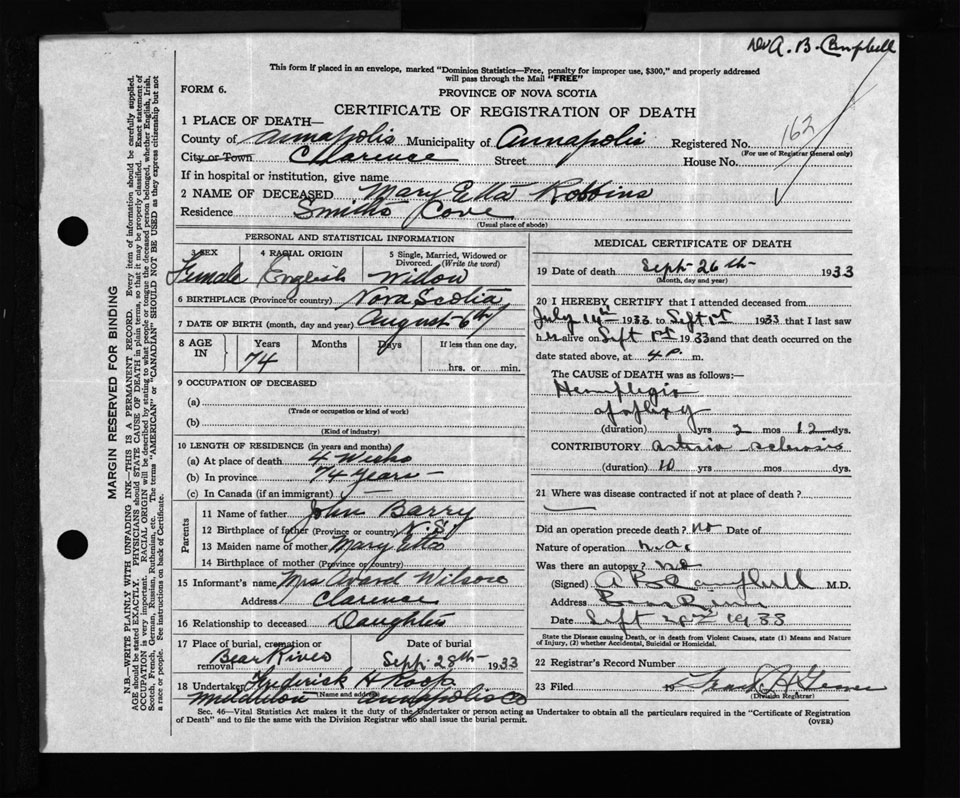 Dr A. B. Campbell
This form if placed in an envelope, marked "Dominion Statistics—Free, penalty for improper use, $300," and properly addressed
will pass through the Mail "FREE"
FORM 6.
PROVINCE OF NOVA SCOTIA
CERTIFICATE OF REGISTRATION OF DEATH
162
1 PLACE OF DEATH—
County of Annapolis Municipality of Annapolis Registered No.
(For use of Registrar General only)
City or Town Clarence Street House No.
If in hospital or institution, give name
2 NAME OF DECEASED Mary Etta Robbins
Residence Smiths Cove
(Usual place of abode)
PERSONAL AND STATISTICAL INFORMATION
3 SEX 4 RACIAL ORIGIN 5 Single, Married, Widowed or
Divorced. (Write the word)
Female English Widow
6 BIRTHPLACE (Province or country) Nova Scotia
7 DATE OF BIRTH (month, day and year) August 6th
8 AGE IN Years Months Days If less than one day,
74 hrs. or min.
9 OCCUPATION OF DECEASED
(a)
(Trade or occupation or kind of work)
(b)
(Kind of industry)
10 LENGTH OF RESIDENCE (in years and months)
(a) At place of death 4 Weeks
(b) In province 74 years —
(c) In Canada (if an immigrant) —
Parents
11 Name of father John Barry
12 Birthplace of father (Province or country) N.S.
13 Maiden name of mother Mary
14 Birthplace of mother (Province or country)
15 Informant's name Mrs Avard Wilson
Address Clarence
16 Relationship to deceased Daughter
17 Place of burial, cremation or removal Date of burial
Bear River Sept. 28th 1933
18 Undertaker Frederick H Roop
(Name and address)
Middleton Annapolis Co
MEDICAL CERTIFICATE OF DEATH
19 Date of death Sept 26th 1933
(Month, day and year)
20 I HEREBY CERTIFY that I attended deceased from
July 14th 1933 to Sept 1st 1933 that I last saw
her alive on Sept 1st 1933 and that death occurred on the
date stated above, at 4 P. m.
The CAUSE of DEATH was as follows:—
Hemiplegia
apoplexy
(duration) yrs 2 mos 12 dys.
CONTRIBUTORY Arterio sclerosis
(duration) 10 yrs mos dys.
21 Where was disease contracted if not at place of death?
Did an operation precede death? no Date of
Nature of operation n.a.
Was there an autopsy? no
(Signed) A B Campbell M.D.
Address Bear River
Date Sept 1933
State the Disease causing Death, or in death from Violent Causes, state (1) Means and Nature
of Injury, (2) whether Accidental, Suicidal or Homicidal.
22 Registrar's Record Number
23 Filed 19
(Division Registrar)
Sec. 46—Vital Statistics Act makes it the duty of the Undertaker or person acting as Undertaker to obtain all the particulars required in the "Certificate of Registration
of Death" and to file the same with the Division Registrar who shall issue the burial permit.
(OVER)
MARGIN RESERVED FOR BINDING
N.B.—WRITE PLAINLY WITH UNFADING INK—THIS IS A PERMANENT RECORD. Every item of information should be carefully supplied.
AGE should be stated EXACTLY. PHYSICIANS should STATE CAUSE OF DEATH in plain terms, so that it may be properly classified. Exact statement of
OCCUPATION is very important. RACIAL ORIGIN will be described by stating to what people or tongue the deceased person belonged, whether English, Irish,
Scotch, French, German, Russian, Ruthenian, etc. The terms "AMERICAN" or "CANADIAN" SHOULD NOT BE USED as they express citizenship but not
a race or people. See instructions on back of Certificate.